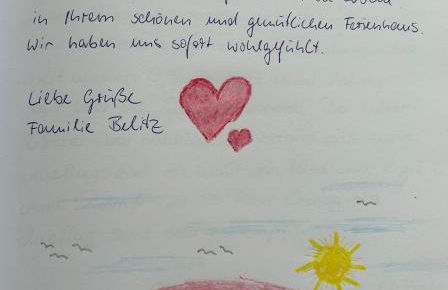 in Ihrem schönen und gemütlichen Ferienhaus.
Wir haben uns sofort wohlgefühlt.
Liebe Grüße
Familie Belitz